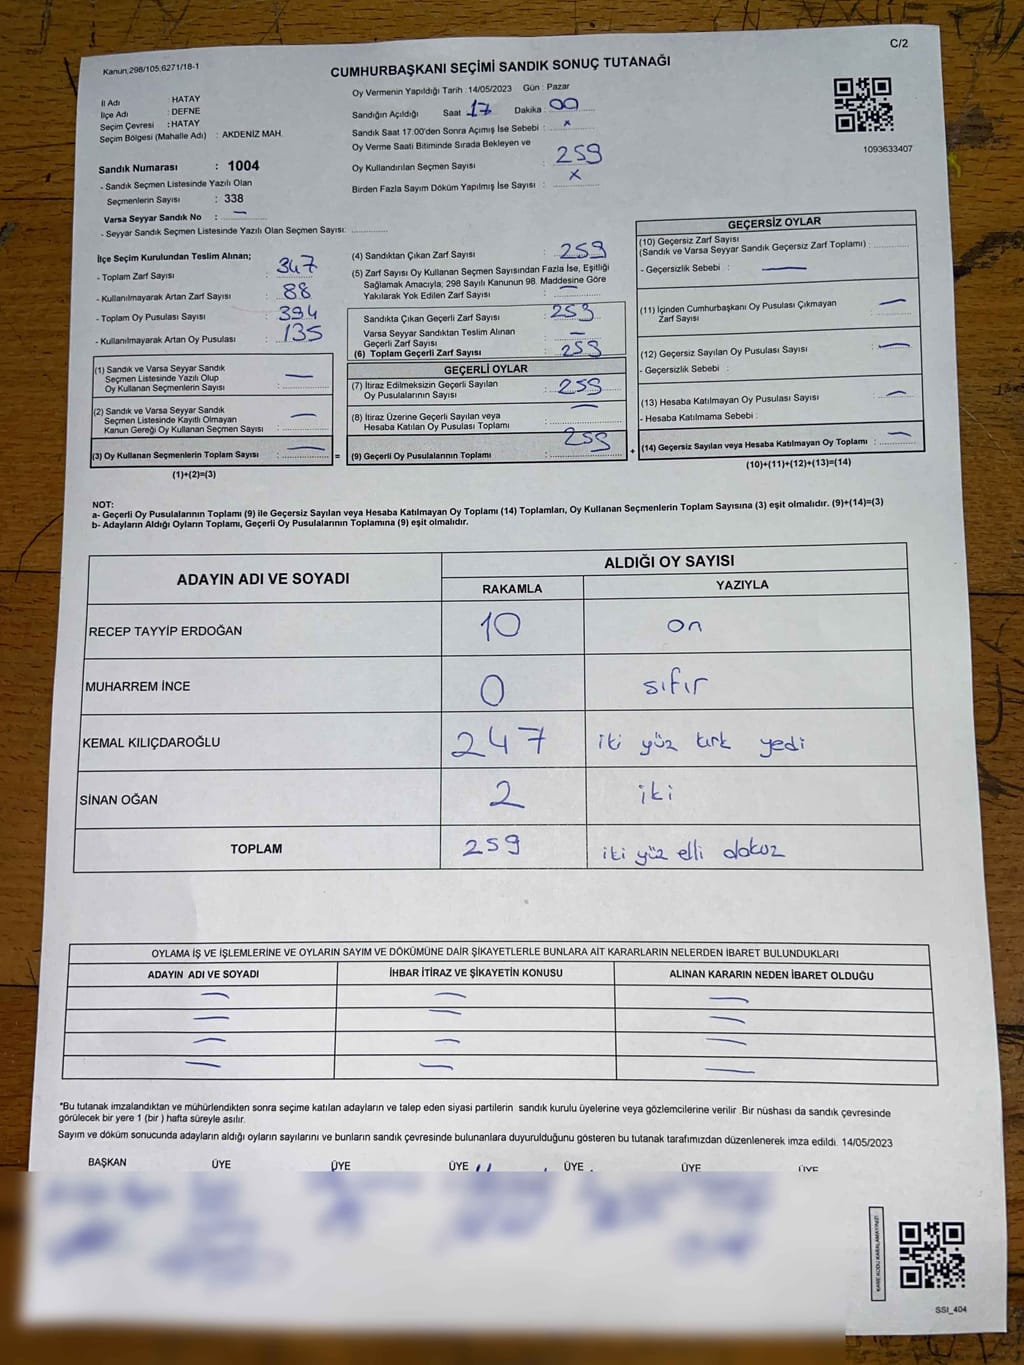 C/2
Kanun,298/105,6271/18-1
CUMHURBAŞKANI SEÇİMİ SANDIK SONUÇ TUTANAĞI
İl Adı : HATAY
İlçe Adı : DEFNE
Seçim Çevresi : HATAY
Seçim Bölgesi (Mahalle Adı) : AKDENİZ MAH.
Oy Vermenin Yapıldığı Tarih : 14/05/2023 Gün : Pazar
Sandığın Açıldığı Saat 17 Dakika : 00
Sandık Saat 17.00'den Sonra Açımış İse Sebebi : x
Oy Verme Saati Bitiminde Sırada Bekleyen ve
Oy Kullandırılan Seçmen Sayısı : 259
Birden Fazla Sayım Döküm Yapılmış İse Sayısı : x
1093633407
Sandık Numarası : 1004
- Sandık Seçmen Listesinde Yazılı Olan
Seçmenlerin Sayısı : 338
Varsa Seyyar Sandık No : —
- Seyyar Sandık Seçmen Listesinde Yazılı Olan Seçmen Sayısı:
İlçe Seçim Kurulundan Teslim Alınan;
- Toplam Zarf Sayısı : 347
- Kullanılmayarak Artan Zarf Sayısı : 88
- Toplam Oy Pusulası Sayısı : 394
- Kullanılmayarak Artan Oy Pusulası : 135
(1) Sandık ve Varsa Seyyar Sandık
Seçmen Listesinde Yazılı Olup
Oy Kullanan Seçmenlerin Sayısı : —
(2) Sandık ve Varsa Seyyar Sandık
Seçmen Listesinde Kayıtlı Olmayan
Kanun Gereği Oy Kullanan Seçmen Sayısı : —
(3) Oy Kullanan Seçmenlerin Toplam Sayısı : —
(1)+(2)=(3)
=
(4) Sandıktan Çıkan Zarf Sayısı : 259
(5) Zarf Sayısı Oy Kullanan Seçmen Sayısından Fazla İse, Eşitliği
Sağlamak Amacıyla; 298 Sayılı Kanunun 98. Maddesine Göre
Yakılarak Yok Edilen Zarf Sayısı : —
Sandıkta Çıkan Geçerli Zarf Sayısı : 259
Varsa Seyyar Sandıktan Teslim Alınan
Geçerli Zarf Sayısı : —
(6) Toplam Geçerli Zarf Sayısı : 259
GEÇERLİ OYLAR
(7) İtiraz Edilmeksizin Geçerli Sayılan
Oy Pusulalarının Sayısı : 259
(8) İtiraz Üzerine Geçerli Sayılan veya
Hesaba Katılan Oy Pusulası Toplamı : —
(9) Geçerli Oy Pusulalarının Toplamı : 259
+
GEÇERSİZ OYLAR
(10) Geçersiz Zarf Sayısı
(Sandık ve Varsa Seyyar Sandık Geçersiz Zarf Toplamı) :
- Geçersizlik Sebebi : —
(11) İçinden Cumhurbaşkanı Oy Pusulası Çıkmayan
Zarf Sayısı : —
(12) Geçersiz Sayılan Oy Pusulası Sayısı : —
- Geçersizlik Sebebi :
(13) Hesaba Katılmayan Oy Pusulası Sayısı : —
- Hesaba Katılmama Sebebi :
(14) Geçersiz Sayılan veya Hesaba Katılmayan Oy Toplamı : —
(10)+(11)+(12)+(13)=(14)
NOT:
a- Geçerli Oy Pusulalarının Toplamı (9) ile Geçersiz Sayılan veya Hesaba Katılmayan Oy Toplamı (14) Toplamları, Oy Kullanan Seçmenlerin Toplam Sayısına (3) eşit olmalıdır. (9)+(14)=(3)
b- Adayların Aldığı Oyların Toplamı, Geçerli Oy Pusulalarının Toplamına (9) eşit olmalıdır.
ADAYIN ADI VE SOYADI ALDIĞI OY SAYISI
RAKAMLA YAZIYLA
RECEP TAYYİP ERDOĞAN 10 on
MUHARREM İNCE 0 sıfır
KEMAL KILIÇDAROĞLU 247 iki yüz kırk yedi
SİNAN OĞAN 2 iki
TOPLAM 259 iki yüz elli dokuz
OYLAMA İŞ VE İŞLEMLERİNE VE OYLARIN SAYIM VE DÖKÜMÜNE DAİR ŞİKAYETLERLE BUNLARA AİT KARARLARIN NELERDEN İBARET BULUNDUKLARI
ADAYIN ADI VE SOYADI İHBAR İTİRAZ VE ŞİKAYETİN KONUSU ALINAN KARARIN NEDEN İBARET OLDUĞU
— — —
— — —
— — —
— — —
*Bu tutanak imzalandıktan ve mühürlendikten sonra seçime katılan adayların ve talep eden siyasi partilerin sandık kurulu üyelerine veya gözlemcilerine verilir .Bir nüshası da sandık çevresinde
görülecek bir yere 1 (bir ) hafta süreyle asılır.
Sayım ve döküm sonucunda adayların aldığı oyların sayılarını ve bunların sandık çevresinde bulunanlara duyurulduğunu gösteren bu tutanak tarafımızdan düzenlenerek imza edildi. 14/05/2023
BAŞKAN ÜYE ÜYE ÜYE ÜYE ÜYE ÜYE
KARE KODU KARALAMAYINIZ!
SSI_404